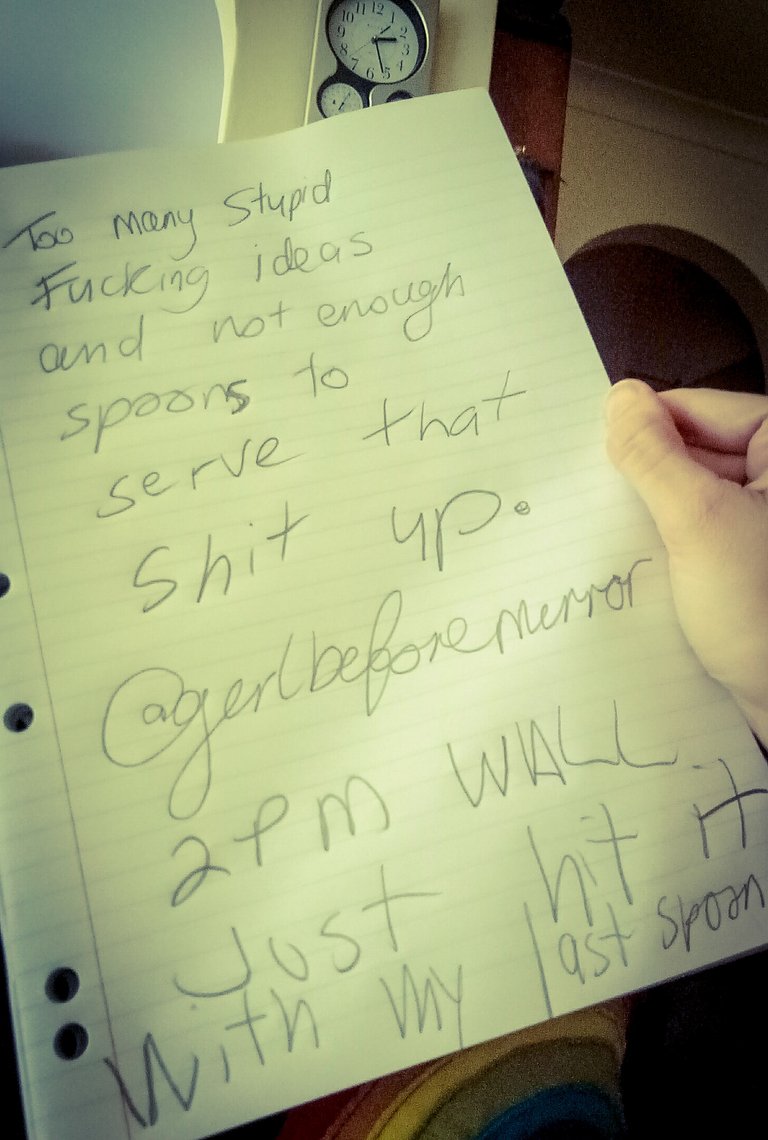 11 12 1
10 2
9 3
8
7 6 5
Too many Stupid
Fucking ideas
and not enough
spoons to
serve that
Shit up.
@gerlbeforemerror
2PM WALL.
Just hit it
With my last spoon